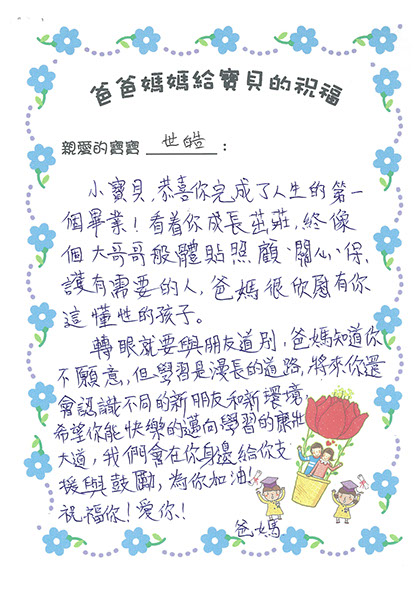 爸爸媽媽給寶貝的祝福
親愛的寶寶 世皓 :
小寶貝,恭喜你完成了人生的第一
個畢業!看着你成長茁莊,終像
個大哥哥般體貼照顧、關心、保
護有需要的人,爸媽很欣慰有你
這懂性的孩子。
轉眼就要與朋友道別,爸媽知道你
不願意,但學習是漫長的道路,將來你還
會認識不同的新朋友和新環境,
希望你能快樂的邁向學習的康壯
大道,我們會在你身邊給你支
援與鼓勵,為你加油!
祝福你!愛你!
爸媽